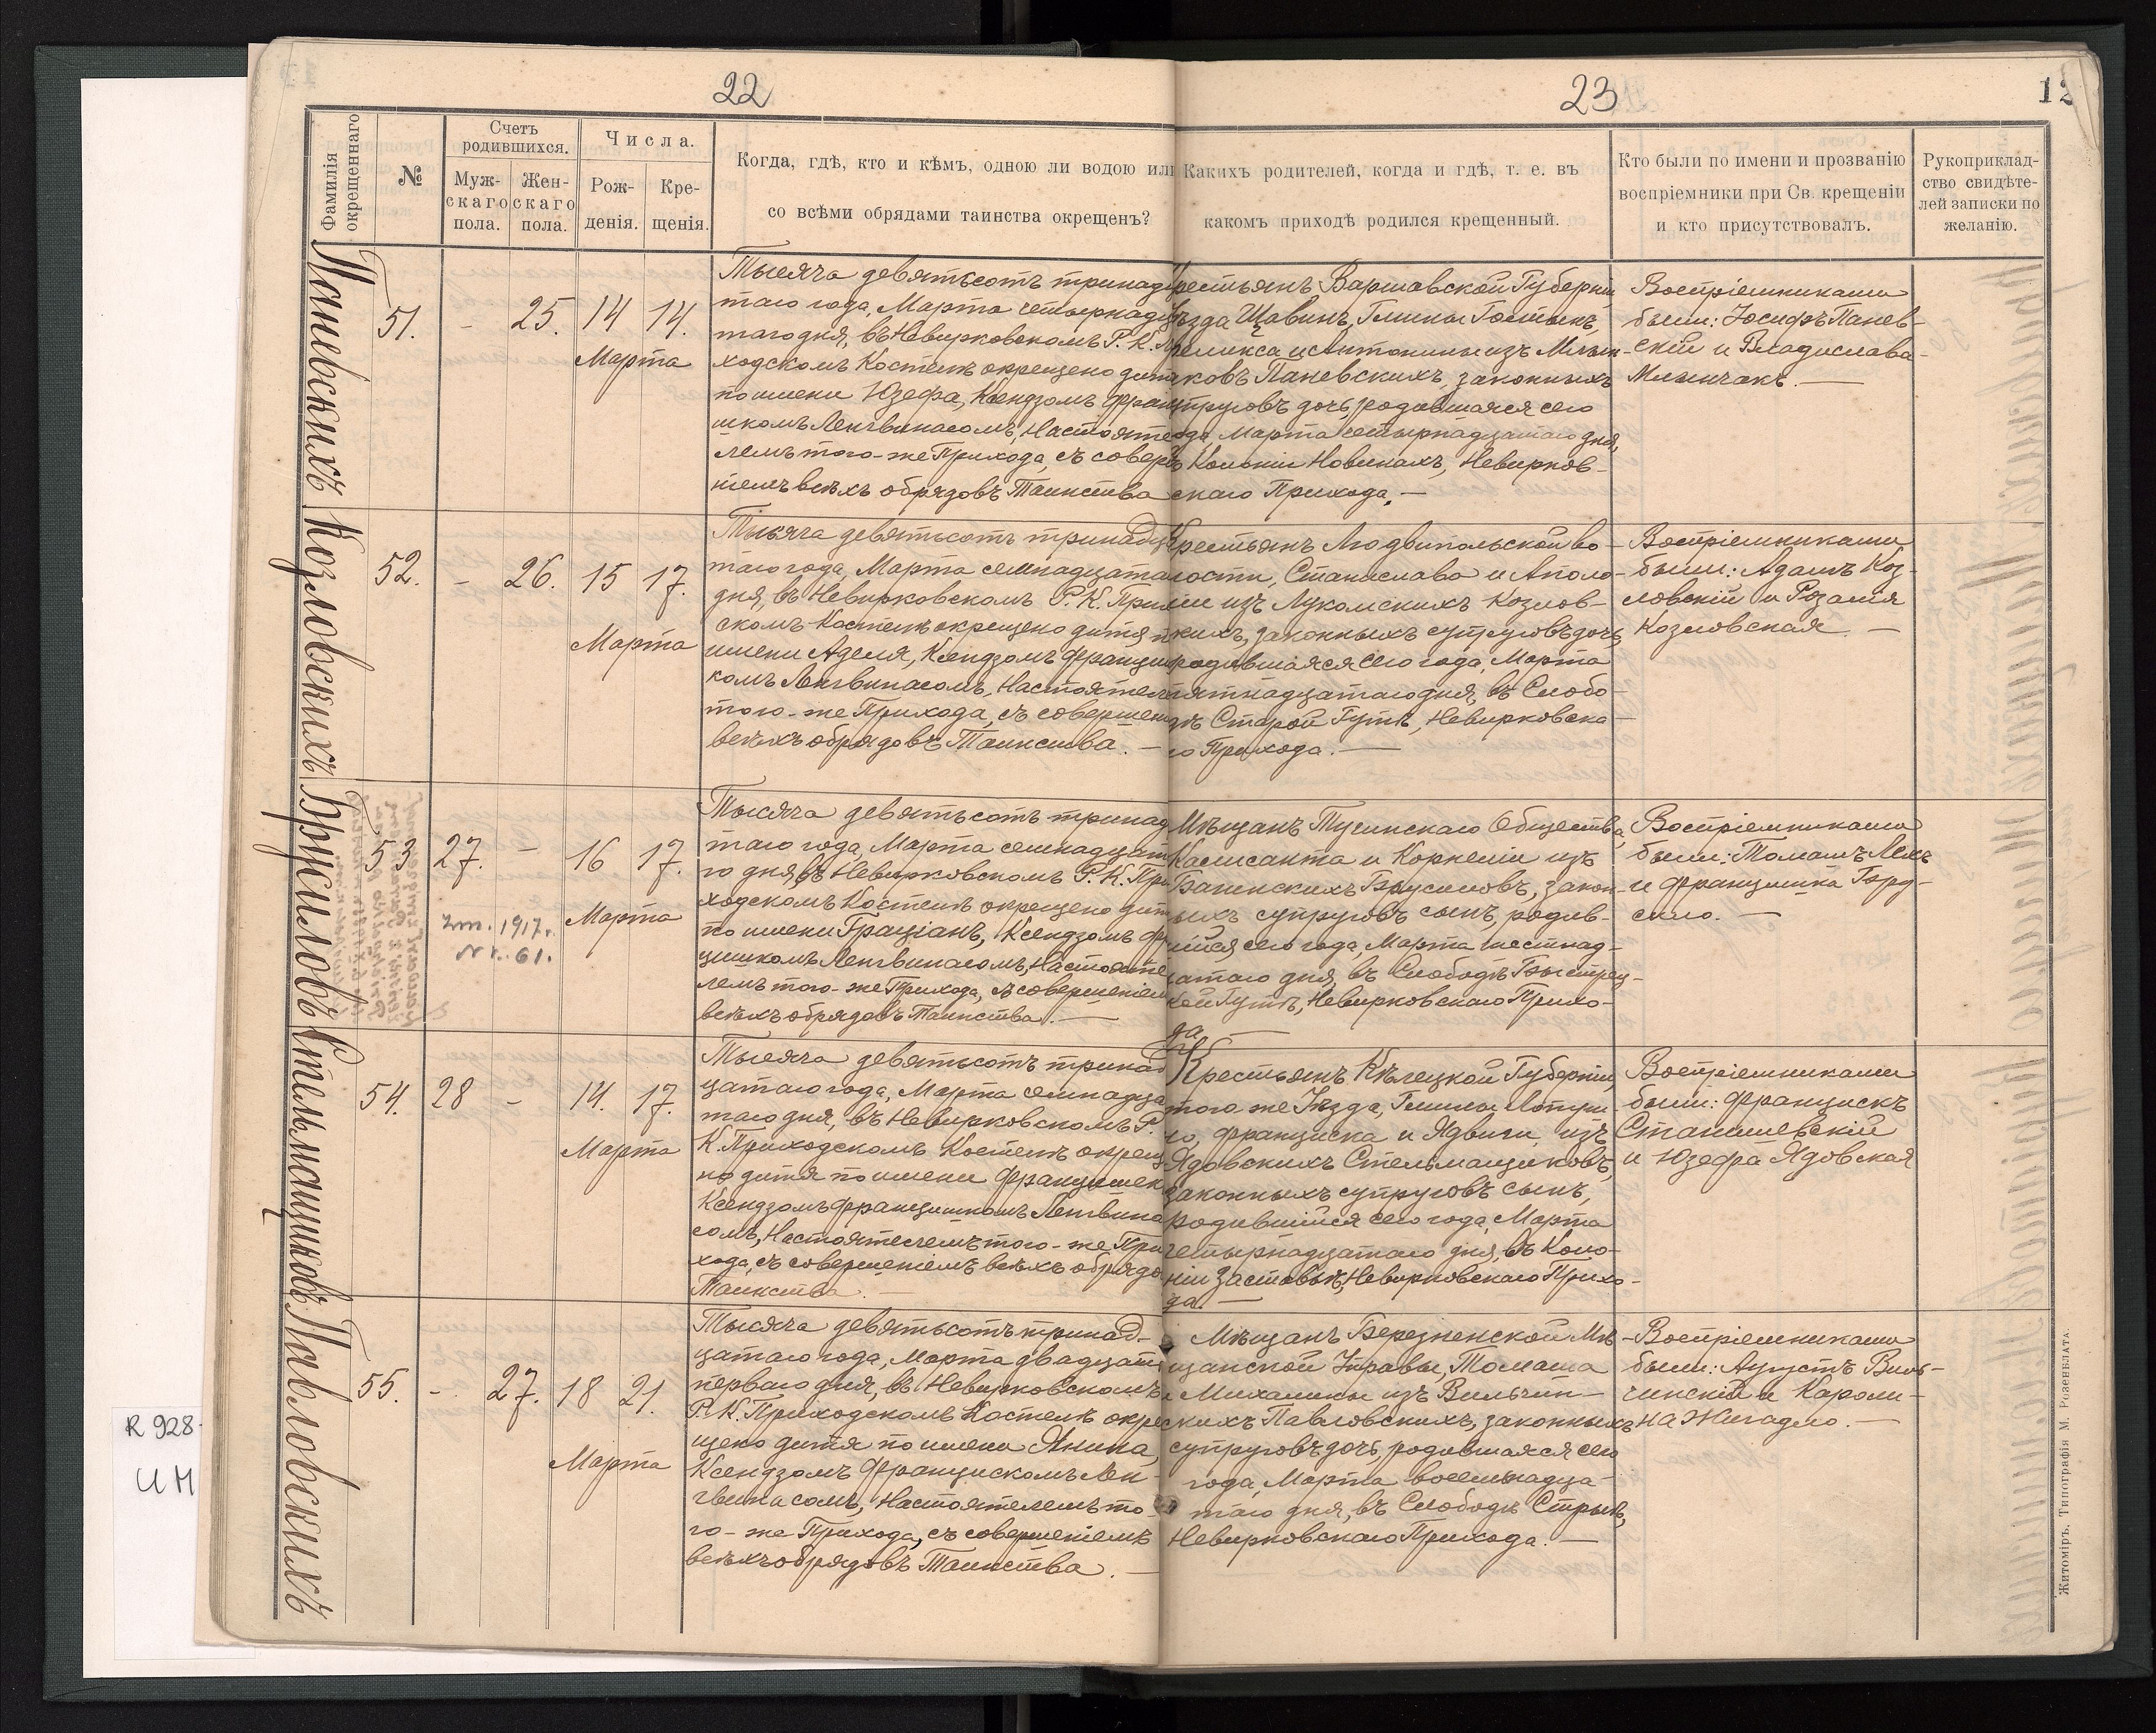 22
23
12
Фамилія окрещеннаго
№
Счетъ родившихся.
Мужскаго пола.
Женскаго пола.
Числа.
Рожденія.
Крещенія.
Когда, гдѣ, кто и кѣмъ, одною ли водою или
со всѣми обрядами таинства окрещенъ?
Какихъ родителей, когда и гдѣ, т. е. въ
какомъ приходѣ родился крещенный.
Кто были по имени и прозванію
воспріемники при Св. крещеніи
и кто присутствовалъ.
Рукоприклад-
ство свидѣте-
лей записки по
желанію.
Паневскихъ
51. - 25. 14 14.
Марта
Тысяча девятьсотъ тринад
таго года, Марта четырнадца
таго дня, въ Невирковскомъ Р. К. П
ходскомъ Костелѣ окрещено дитя
по имени Юзефа, Ксендзомъ Франц
ишкомъ Ленгвинасомъ, Настояте
лемъ того-же Прихода, съ соверше
ніемъ всѣхъ обрядовъ Таинства
Крестьянъ Варшавской Губерніи
Уѣзда Щавинъ, Гмины Гостынъ,
Феликса и Антонины изъ Млын-
ковъ Паневскихъ, законныхъ
супруговъ дочь, родившаяся сего
года, Марта четырнадцатаго дня,
въ Колоніи Новинахъ, Невирков-
скаго Прихода. —
Воспріемниками
были: Іосифъ Панев-
скій и Владислава
Млынчакъ. —
Козловскихъ
52. - 26. 15 17.
Марта
Тысяча девятьсотъ тринадца
таго года, Марта семнадцата
дня, въ Невирковскомъ Р. К. Прих
скомъ Костелѣ окрещено дитя, п
имени Аделя, Ксендзомъ Францишк
комъ Ленгвинасомъ, Настоятел
того-же Прихода, съ совершен
всѣхъ обрядовъ Таинства. —
Крестьянъ Людвипольской во-
лости, Станислава и Аполо-
ніи изъ Лукомскихъ Козлов-
скихъ, законныхъ супруговъ дочь,
родившаяся сего года, Марта
пятнадцатаго дня, въ Слобо-
дѣ Старой Гутѣ, Невирковска-
го Прихода. —
Воспріемниками
были: Адамъ Коз-
ловскій и Розалія
Козловская. —
Брусиловъ
53 27. - 16 17.
zm. 1917 r.
Nr. 61.
Марта
Тысяча девятьсотъ тринад
таго года, Марта семнадцат
го дня, въ Невирковскомъ Р. К. При
ходскомъ Костелѣ окрещено дит
по имени Граціанъ, Ксендзомъ Фр
цишкомъ Ленгвинасомъ, Настояте
лемъ того-же Прихода, съ совершеніем
всѣхъ обрядовъ Таинства. —
Мѣщанъ Тучинскаго Общества,
Каликсанта и Корнеліи изъ
Багинскихъ Брусиловъ, закон-
ныхъ супруговъ сынъ, родив-
шійся сего года, Марта шестнад-
цатаго дня, въ Слободѣ Быстрец-
кой Гутѣ, Невирковскаго Прихо-
да. —
Воспріемниками
были: Томашъ Лехъ
и Францишка Бру-
сило. —
Стельмащиковъ
54. 28 - 14. 17.
Марта
Тысяча девятьсотъ тринад
цатаго года, Марта семнадца
таго дня, въ Невирковскомъ Р.
К. Приходскомъ Костелѣ окреще
но дитя по имени Францишек
Ксендзомъ Францишкомъ Ленгвина
сомъ, Настоятелемъ того-же При
хода, съ совершеніемъ всѣхъ обрядо
Таинства. —
Крестьянъ Кѣлецкой Губерніи
того-же Уѣзда, Гмины Лопуш-
но, Франциска и Ядвиги изъ
Ядовскихъ Стельмащиковъ,
законныхъ супруговъ сынъ,
родившійся сего года, Марта
четырнадцатаго дня, въ Коло-
ніи Заставье, Невирковскаго Прихо-
да. —
Воспріемниками
были: Францискъ
Станишевскій
и Юзефа Ядовская
Павловскихъ
55. - 27. 18 21.
Марта
Тысяча девятьсотъ тринад-
цатаго года, Марта двадцать
перваго дня, въ Невирковскомъ
Р. К. Приходскомъ Костелѣ окре
щено дитя по имени Янина,
Ксендзомъ Францискомъ Лен-
гвинасомъ, Настоятелемъ то
го-же Прихода, съ совершеніемъ
всѣхъ обрядовъ Таинства. —
Мѣщанъ Березненской Мѣ-
щанской Управы, Томаша
и Михалины изъ Вильчин-
скихъ Павловскихъ, законныхъ
супруговъ дочь, родившаяся сего
года, Марта восемнадца-
таго дня, въ Слободѣ Стрыѣ,
Невирковскаго Прихода. —
Воспріемниками
были: Августъ Виль-
чинскій и Кароли-
на Жигадло. —
Житоміръ. Типографія М. Розенблата.
R 928